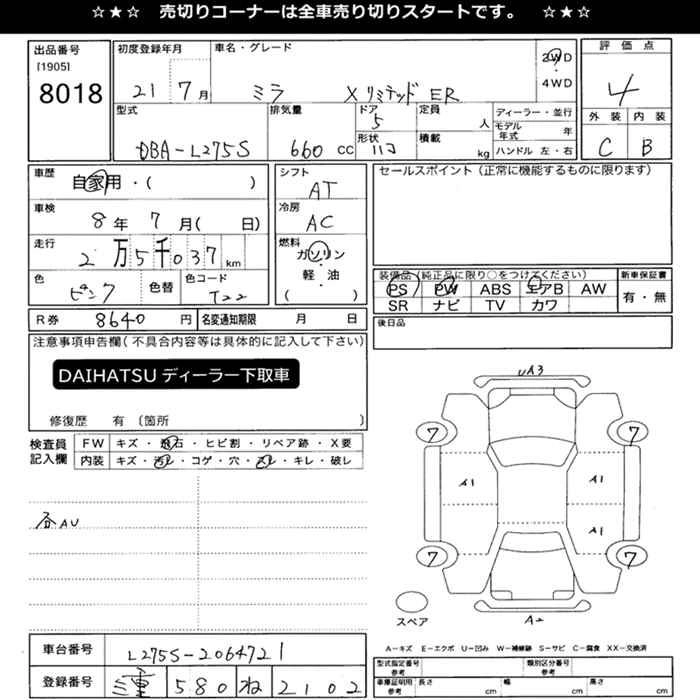 ☆★☆ 売切りコーナーは全車売り切りスタートです。 ☆★☆
出品番号
[1905]
8018
初度登録年月
21 7月
車名・グレード
ミラ Xリミテッド ER
2WD
・
4WD
評価点
4
外装 内装
C B
型式
DBA-L275S
排気量
660 CC
ドア
5
形状
ハコ
定員
人
積載
kg
ディーラー・並行
モデル年式 年
ハンドル 左・右
車歴
自家用・( )
車検
8年 7月( 日)
走行
2万5千037 km
色
ピンク
色替
色コード
T22
シフト
AT
冷房
AC
燃料
ガソリン
・
軽・油
( )
セールスポイント(正常に機能するものに限ります)
装備品(純正品に限り○をつけてください)
PS PW ABS エアB AW
SR ナビ TV カワ
新車保証書
有・無
R券 8640 円 名変通知期限 月 日
後日品
注意事項申告欄(不具合内容等は具体的に記入して下さい)
DAIHATSU ディーラー下取車
修復歴 有 〔箇所 〕
検査員
記入欄
FW キズ・飛石・ヒビ割・リペア跡・X要
内装 キズ・汚レ・コゲ・穴・スレ・キレ・破レ
各AU
UA3
7 7
A1 A1
A1
7 7
スペア
A2
A-キズ E-エクボ U-凹み W-補修跡 S-サビ C-腐食 XX-交換済
車台番号
L275S-2064721
登録番号
三重 580 ね 2102
型式指定番号
参考
類別区分番号
参考
車庫証明用
参考
長さ cm 幅 cm 高さ cm